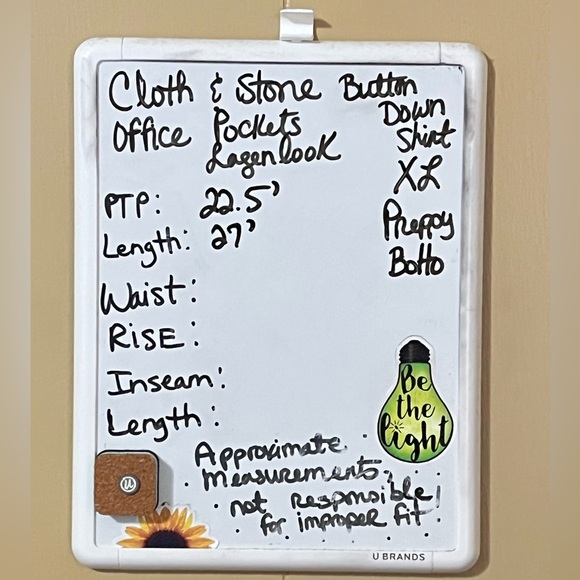 Cloth & Stone Button
Down
Office Pockets
Shirt
Lagenlook
XL
PTP: 22.5"
Preppy
Length: 27"
Botto
Waist:
RiSE:
Inseam:
Length:
Be
the
light
Approximate
measurements.
not Responsible
for improper fit.
U
U BRANDS